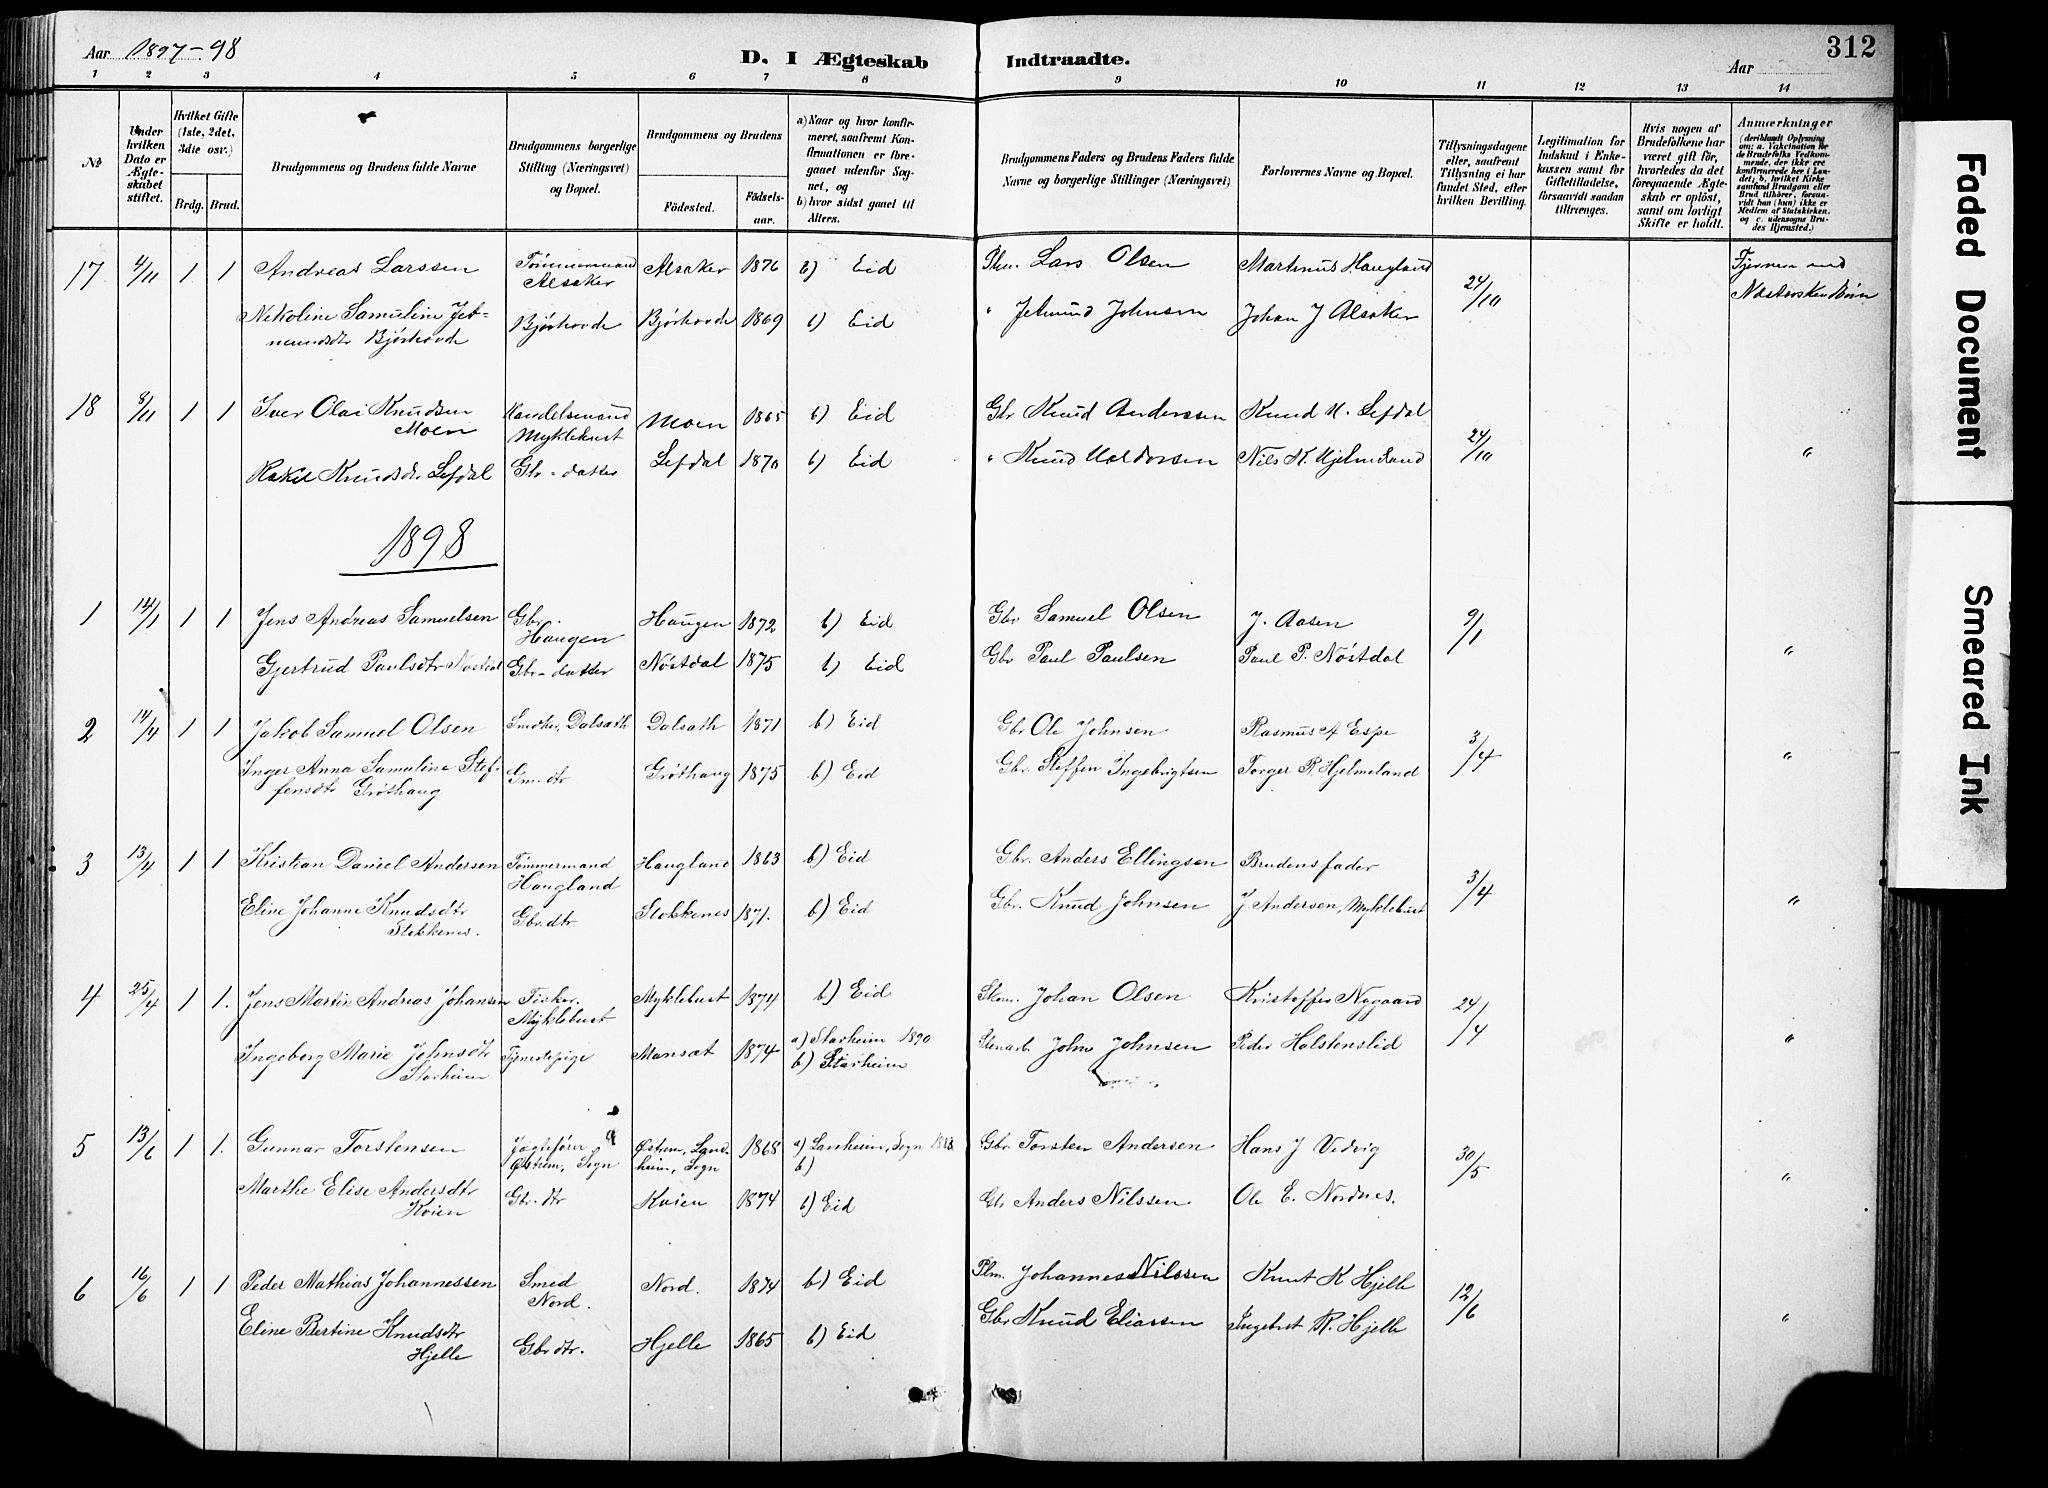 Aar 1897-98
D. I Ægteskab Indtraadte.
Aar
312
1 2 3 4 5 6 7 8 9 10 11 12 13 14
No
Under hvilken Dato er Ægteskabet stiftet.
Hvilket Gifte (1ste, 2det, 3die osv.)
Brdg. Brud.
Brudgommens og Brudens fulde Navne
Brudgommens borgerlige Stilling (Næringsvei) og Bopæl.
Brudgommens og Brudens
Fødested. Fødselsaar.
a) Naar og hvor konfirmeret, saafremt Konfirmationen er foregaaet udenfor Sognet, og
b) hvor sidst gaaet til Alters.
Brudgommens Faders og Brudens Faders fulde Navne og borgerlige Stillinger (Næringsvei)
Forlovernes Navne og Bopæl.
Tillysningsdagene eller, saafremt Tillysning ei har fundet Sted, efter hvilken Bevilling.
Legitimation for Indskud i Enkekassen samt for Giftetilladelse, forsaavidt saadan tiltrænges.
Hvis nogen af Brudefolkene har været gift før, hvorledes da det foregaaende Ægteskab er opløst, samt om lovligt Skifte er holdt.
Anmærkninger
(deriblandt Oplysning om: a. Vakcination for de Brudefolks Vedkommende, der ikke ere konfirmerede her i Landet; b. hvilket Kirkesamfund Brudgom eller Brud tilhører, forsaavidt han (hun) ikke er Medlem af Statskirken, og c. udensogns Brudes Hjemsted.)
17 4/11 1 1 Andreas Larssen Tømmermand Alsaker Alsaker 1876 b) Eid Plm. Lars Olsen Martinus Haugland 24/10
Nikoline Samuline Jetmundsdtr Bjørhovde Bjørhovde Bjørhovde 1869 b) Eid " Jetmund Johnsen Johan J Alsaker
18 8/11 1 1 Iver Olai Knudsen Moen Handelsmand Myklebust Moen 1865 b) Eid Gbr Knud Anderssen Knud H. Lefdal 24/10 "
Rakel Knudsdtr Lefdal Gbr-datter Lefdal 1870 b) Eid " Knud Haldorsen Nils K. Hjelmeland
1898
1 14/1 1 1 Jens Andreas Samuelsen Gbr. Haugen Haugen 1872 b) Eid Gbr Samuel Olsen J. Aasen 9/1 "
Gjertrud Paulsdtr Nøstdal Gbr-datter Nøstdal 1875 b) Eid Gbr Paul Paulsen Paul P. Nøstdal
2 14/4 1 1 Jakob Samuel Olsen Dalsath Dalsath 1871 b) Eid Gbr Ole Johnsen Rasmus A Espe 3/4 "
Inger Anna Samuline Steffensdtr Grøthaug Gm. dtr Grøthaug 1875 b) Eid Gbr. Steffen Ingebrigtsen Torger R. Hjelmeland
3 13/4 1 1 Kristian Daniel Andersen Tømmermand Haugland Haugland 1863 b) Eid Gbr. Anders Ellingsen Brudens fader 3/4 "
Eline Johanne Knudsdtr Stokkenes. Gbr. dtr Stokkenes 1871. b) Eid Gbr. Knud Johnsen J. Andersen, Myklebust
4 25/4 1 1. Jens Martin Andreas Johansen Fisker. Myklebust Myklebust 1874 b) Eid Johan Olsen Kristoffer Nygaard 24/4 "
Ingeborg Marie Johnsdtr Starheim Tjenestepige Mansæt 1874 a) Starheim 1890 b) Starheim Stenarb. John Johnsen Peder Halstenslid
5 13/6 1 1. Gunnar Torstensen Jægtefører Østrem, Sogn Østrem, Lanheim, Sogn 1868 a) Lanheim, Sogn b) Gbr Torsten Andersen Hans J Vedvig 30/5 "
Marthe Elise Andersdtr Kvien Gbr. dtr Kvien 1874 b) Eid Gbr Anders Nilssen Ole E. Nordnes.
6 16/6 1 1 Peder Mathias Johannessen Smed Nord. Nord. 1874 b) Eid Plm. Johannes Nilssen Knut K Hjelle 12/6 "
Eline Bertine Knudsdtr Hjelle Gbr dtr. Hjelle 1865 b) Eid Gbr Knud Eliassen Ingebret R. Hjelle
Faded Document
Smeared Ink